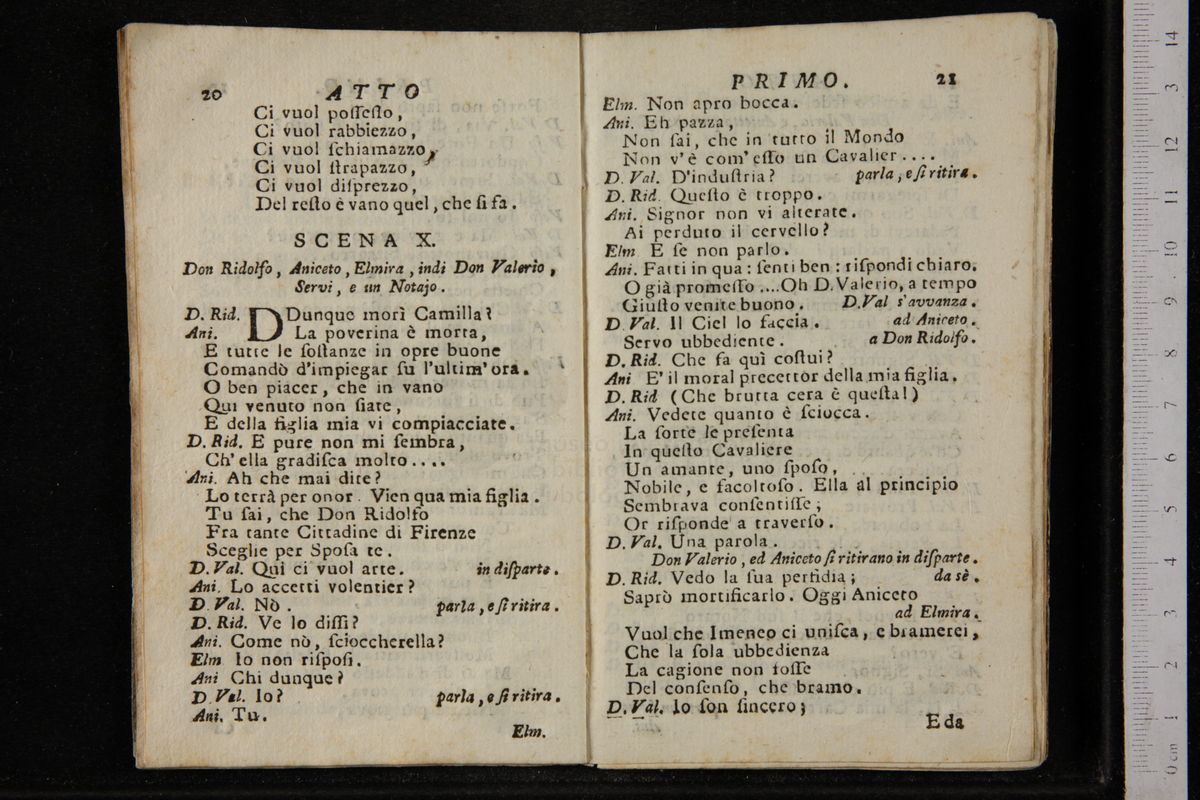 20 ATTO
Ci vuol poſſeſſo,
Ci vuol rabbiezzo,
Ci vuol ſchiamazzo,
Ci vuol ſtrapazzo,
Ci vuol diſprezzo,
Del reſto è vano quel, che ſi fa.
SCENA X.
Don Ridolfo, Aniceto, Elmira, indi Don Valerio,
Servi, e un Notajo.
D. Rid. DDunque morì Camilla?
Ani. La poverina è morta,
E tutte le ſoſtanze in opre buone
Comandò d'impiegar ſu l'ultim' ora.
O ben piacer, che in vano
Qui venuto non ſiate,
E della figlia mia vi compiacciate.
D. Rid. E pure non mi ſembra,
Ch' ella gradiſca molto....
Ani. Ah che mai dite?
Lo terrà per onor. Vien qua mia figlia.
Tu ſai, che Don Ridolfo
Fra tante Cittadine di Firenze
Sceglie per Spoſa te.
D. Val. Qui ci vuol arte. in diſparte.
Ani. Lo accetti volentier?
D. Val. Nò. parla, e ſi ritira.
D. Rid. Ve lo diſſi?
Ani. Come nò, ſcioccherella?
Elm Io non riſpoſi.
Ani Chi dunque?
D Val. Io? parla, e ſi ritira.
Ani. Tu.
Elm.
PRIMO. 21
Elm. Non apro bocca.
Ani. Eh pazza,
Non ſai, che in tutto il Mondo
Non v'è com' eſſo un Cavalier....
D. Val. D'induſtria? parla, e ſi ritira.
D. Rid. Queſto è troppo.
Ani. Signor non vi alterate.
Ai perduto il cervello?
Elm E ſe non parlo.
Ani. Fatti in qua: ſenti ben: riſpondi chiaro.
O già promeſſo ....Oh D. Valerio, a tempo
Giuſto venite buono. D.Val s'avvanza.
D Val. Il Ciel lo faccia. ad Aniceto.
Servo ubbediente. a Don Ridolfo.
D. Rid. Che fa quì coſtui?
Ani E' il moral precettor della mia figlia.
D. Rid (Che brutta cera è queſta!)
Ani. Vedete quanto è ſciocca.
La ſorte le preſenta
In queſto Cavaliere
Un amante, uno ſpoſo,
Nobile, e facoltoſo. Ella al principio
Sembrava conſentiſſe;
Or riſponde a traverſo.
D. Val. Una parola.
Don Valerio, ed Aniceto ſi ritirano in diſparte.
D. Rid. Vedo la ſua perfidia; da sè.
Saprò mortificarlo. Oggi Aniceto
ad Elmira.
Vuol che Imeneo ci uniſca, e bramerei,
Che la ſola ubbedienza
La cagione non foſſe
Del conſenſo, che bramo.
D. Val. Io ſon ſincero;
E da
0 cm 1 2 3 4 5 6 7 8 9 10 11 12 13 14